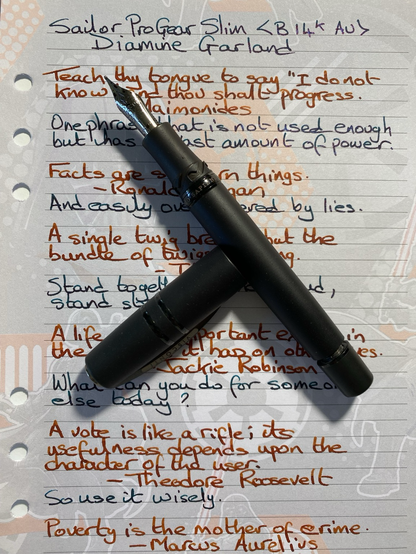 Sailor ProGear Slim <B 14K AU>
Diamine Garland
Teach thy tongue to say "I do not
know" and thou shalt progress.
Maimonides
One phrase that is not used enough
but has vast amount of power.
Facts are stubborn things.
— Ronald Reagan
And easily by lies.
A single twig but the
bundle of twigs
Stand
stand
A life important in
the it has on other lives.
Jackie Robinson
What can you do for someone
else today?
A vote is like a rifle; its
usefulness depends upon the
character of the user.
— Theodore Roosevelt
So use it wisely.
Poverty is the mother of crime.
— Marcus Aurelius